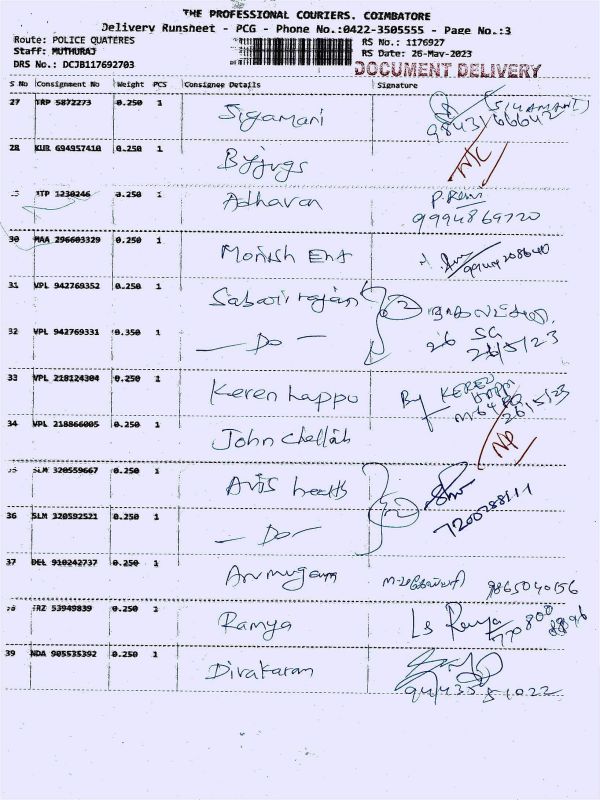 THE PROFESSIONAL COURIERS. COIMBATORE
Delivery Runsheet - PCG - Phone No.:0422-3505555 - Page No.:3
Route: POLICE QUATERES RS No.: 1176927
Staff: MUTHURAJ RS Date: 26-May-2023
DRS No.: DCJB117692703 DOCUMENT DELIVERY
S No Consignment No Weight PCS Consignee Details Signature
27 TRP 5872273 0.250 1 Sigamani (SIGAMANI)
9843166642
28 KUR 694957410 0.250 1 Byjugs N/C
ATP 1230246 0.250 1 Adhavan
9994869720
30 MAA 296603329 0.250 1 Monish Ent 9944208640
31 VPL 942769352 0.250 1 Sabarirajan 2
32 VPL 942769331 0.350 1 — Do — 26 SG
26/5/23
33 VPL 218124304 0.250 1 Keren happu By KEREN
26/5/23
34 VPL 218866005 0.250 1 John Chellah NP
SLM 320559667 0.250 1 Avis health
36 SLM 320592521 0.250 1 — Do — 2
37 DEL 910242737 0.250 1 Arumugam 9865040156
TRZ 53949839 0.250 1 Ramya Ls Ramya
39 NDA 905535392 0.250 1 Divakaran
9443551022